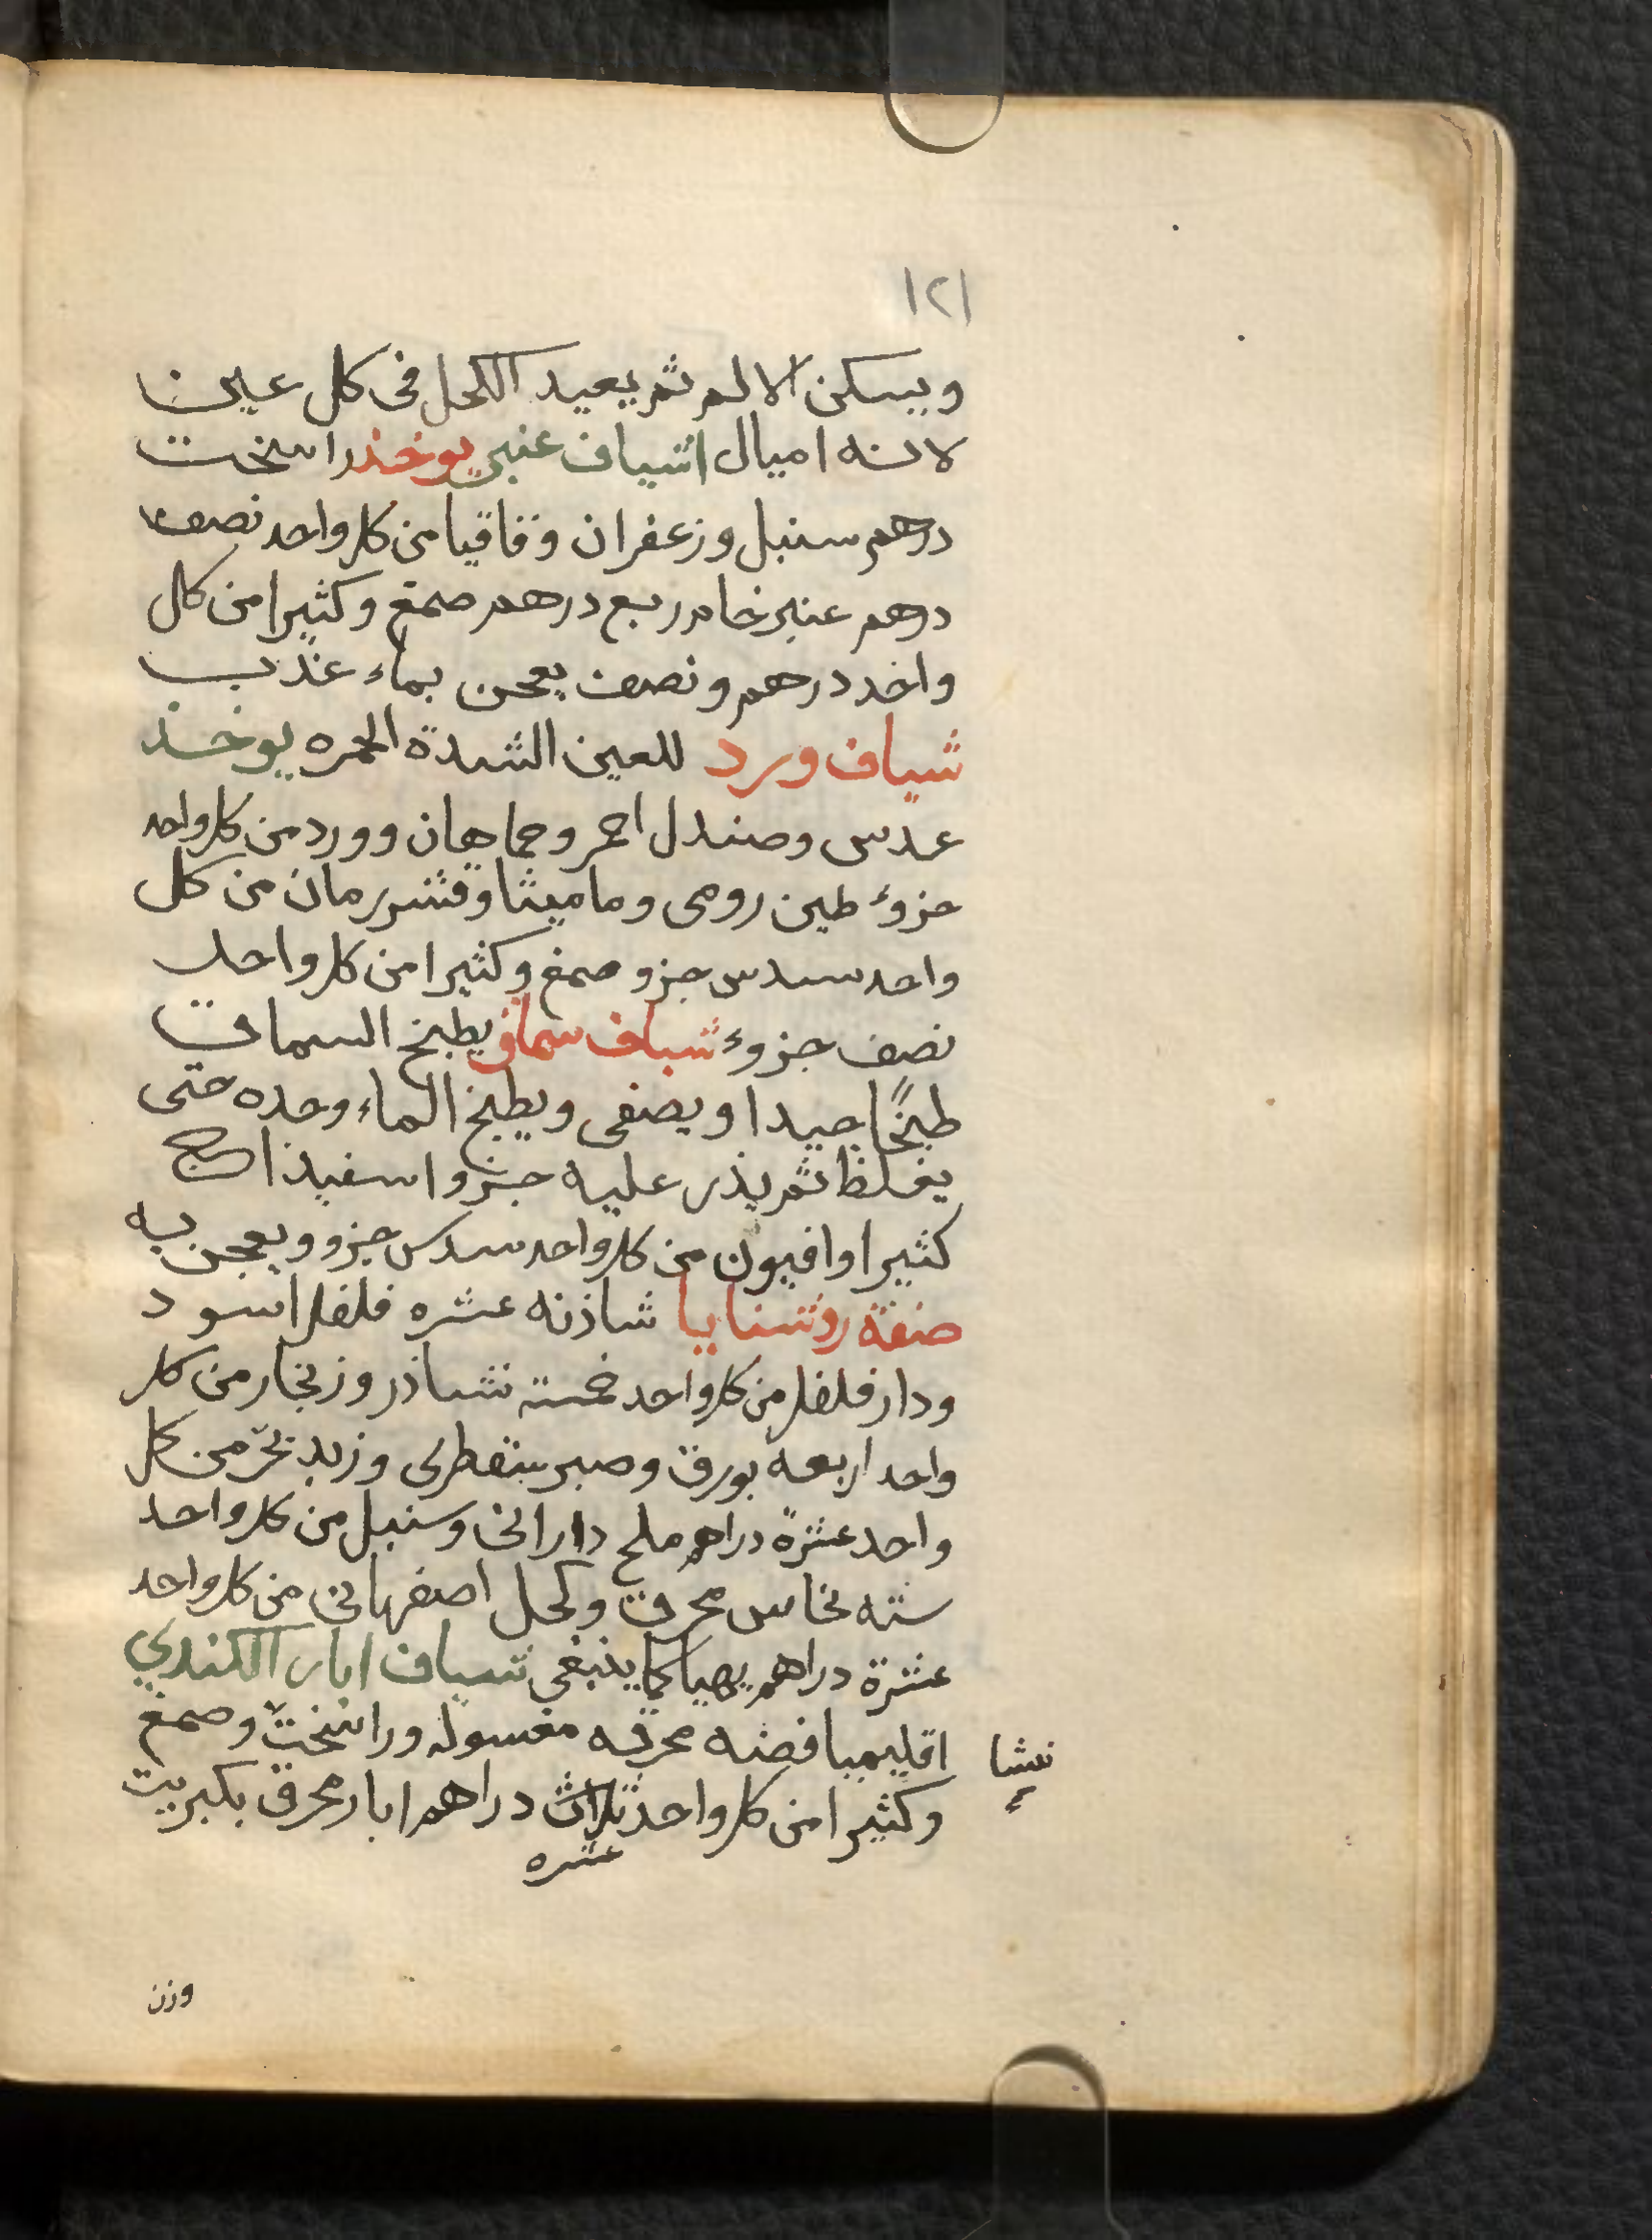 ١٢١
ويسكن الالم ثم يعيد الكحل فى كل عين
لاثه اميال اشياف عنبر يوخذ راسخت
درهم سنبل وزعفران وقاقيا من كل واحد نصف
درهم عنبر خام ربع درهم صمغ وكثيرا من كل
واخد درهم ونصف يعجن بماء عذب
شياف ورد للعين الشدة الحمره يوخذ
عدس وصندل احمر وحماهان وورد من كل واحد
جزوء طين رومى وماميثا وقشر رمان من كل
واحد سدس جزو صمغ وكثيرا من كل واحد
نصف جزوء شياف سماق يطبخ السماق
طبخًا جيدا ويصفى ويطبخ الماء وحده حتى
يغلظ ثم يذر عليه جزو اسفيذاج
كثيرا وافيون من كل واحد سدس جزو ويعجن به
صفة روشنايا شاذنه عشره فلفل اسود
ودار فلفل من كل واحد خمسة نشاذر وزنجار من كل
واحد اربعة بورق وصبر سقطرى وزبد بحر من كل
واحد عشرة دراهم ملح دارانى وسنبل من كل واحد
سته نحاس محرق وكحل اصفهانى من كل واحد
عشرة دراهم يهيا كما ينبغى شياف ابار الكندي
اقليميا فضه محرقه مغسوله وراسخت وصمغ
نشا
وكثيرا من كل واحد ثلاث دراهم ابار محرق بكبريت
عشره
وزن